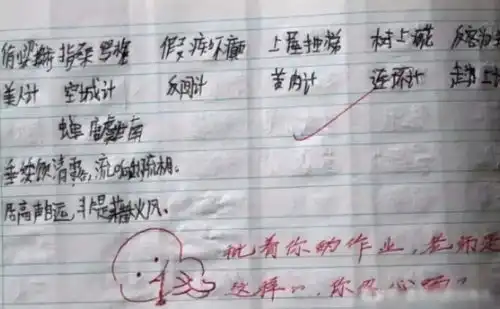 偷梁换柱 指桑骂槐 假痴不癫 上屋抽梯 树上开花 反客为
美人计 空城计 反间计 苦肉计 连环计 走为上计
蝉 虞世南
垂緌饮清露,流响出疏桐。
居高声自远,非是藉秋风。
批着你的作业,老师是
这样的,你